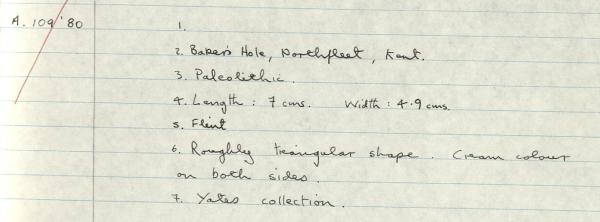 A. 109 '80
1.
2. Baker's Hole, Northfleet, Kent.
3. Paleolithic.
4. Length : 7 cms. Width : 4.9 cms.
5. Flint
6. Roughly triangular shape. Cream colour
on both sides.
7. Yates collection.